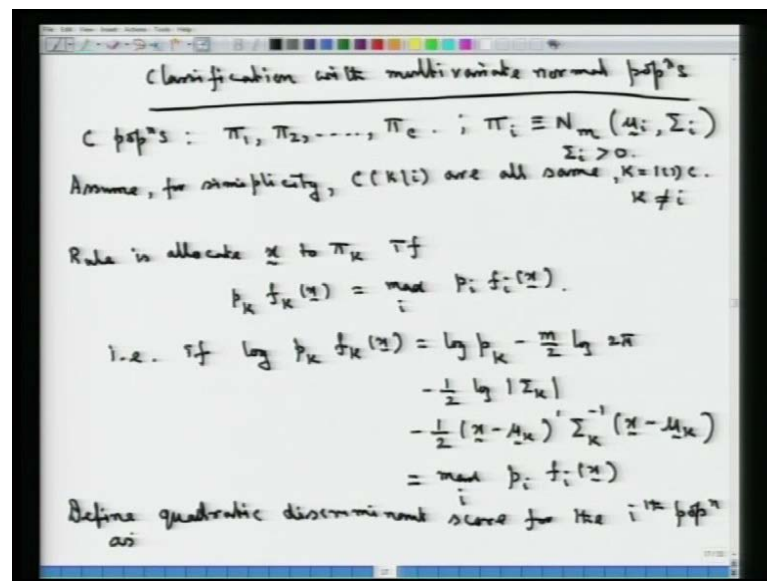 Classification with multivariate normal popⁿs
C popⁿs : π₁, π₂, ...., π_c . ; π_i ≡ N_m (μ_i, Σ_i)
Σ_i > 0.
Assume, for simplicity, C(K|i) are all same, K = 1(1)C.
K ≠ i
Rule is allocate x to π_K if
p_K f_K(x) = max_i p_i f_i(x).
i.e. if log p_K f_K(x) = log p_K - m/2 log 2π
- 1/2 log |Σ_K|
- 1/2 (x - μ_K)' Σ_K^-1 (x - μ_K)
= max_i p_i f_i(x)
Define quadratic discriminant score for the i^th popⁿ
as